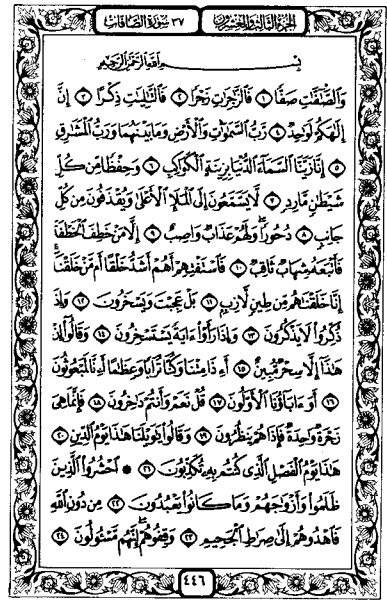 الجزء الثالث والعشرون ٣٧ سورة الصافات
بسم الله الرحمن الرحيم
وَالصَّٰٓفَّٰتِ صَفًّا ١ فَالزَّٰجِرَٰتِ زَجْرًا ٢ فَالتَّٰلِيَٰتِ ذِكْرًا ٣ إِنَّ
إِلَٰهَكُمْ لَوَٰحِدٌ ٤ رَّبُّ السَّمَٰوَٰتِ وَالْأَرْضِ وَمَا بَيْنَهُمَا وَرَبُّ الْمَشَٰرِقِ
٥ إِنَّا زَيَّنَّا السَّمَآءَ الدُّنْيَا بِزِينَةٍ الْكَوَاكِبِ ٦ وَحِفْظًا مِّن كُلِّ
شَيْطَٰنٍ مَّارِدٍ ٧ لَّا يَسَّمَّعُونَ إِلَى الْمَلَإِ الْأَعْلَىٰ وَيُقْذَفُونَ مِن كُلِّ
جَانِبٍ ٨ دُحُورًا وَلَهُمْ عَذَابٌ وَاصِبٌ ٩ إِلَّا مَنْ خَطِفَ الْخَطْفَةَ
فَأَتْبَعَهُ شِهَابٌ ثَاقِبٌ ١٠ فَاسْتَفْتِهِمْ أَهُمْ أَشَدُّ خَلْقًا أَم مَّنْ خَلَقْنَا
إِنَّا خَلَقْنَٰهُم مِّن طِينٍ لَّازِبٍ ١١ بَلْ عَجِبْتَ وَيَسْخَرُونَ ١٢ وَإِذَا
ذُكِّرُوا لَا يَذْكُرُونَ ١٣ وَإِذَا رَأَوْا ءَايَةً يَسْتَسْخِرُونَ ١٤ وَقَالُوٓا إِنْ
هَٰذَآ إِلَّا سِحْرٌ مُّبِينٌ ١٥ أَءِذَا مِتْنَا وَكُنَّا تُرَابًا وَعِظَٰمًا أَءِنَّا لَمَبْعُوثُونَ
١٦ أَوَءَابَآؤُنَا الْأَوَّلُونَ ١٧ قُلْ نَعَمْ وَأَنتُمْ دَٰخِرُونَ ١٨ فَإِنَّمَا هِيَ
زَجْرَةٌ وَٰحِدَةٌ فَإِذَا هُمْ يَنظُرُونَ ١٩ وَقَالُوا يَٰوَيْلَنَا هَٰذَا يَوْمُ الدِّينِ ٢٠
هَٰذَا يَوْمُ الْفَصْلِ الَّذِي كُنتُم بِهِ تُكَذِّبُونَ ٢١ احْشُرُوا الَّذِينَ
ظَلَمُوا وَأَزْوَٰجَهُمْ وَمَا كَانُوا يَعْبُدُونَ ٢٢ مِن دُونِ اللَّهِ
فَاهْدُوهُمْ إِلَىٰ صِرَٰطِ الْجَحِيمِ ٢٣ وَقِفُوهُمْ إِنَّهُم مَّسْـُٔولُونَ ٢٤
٤٤٦